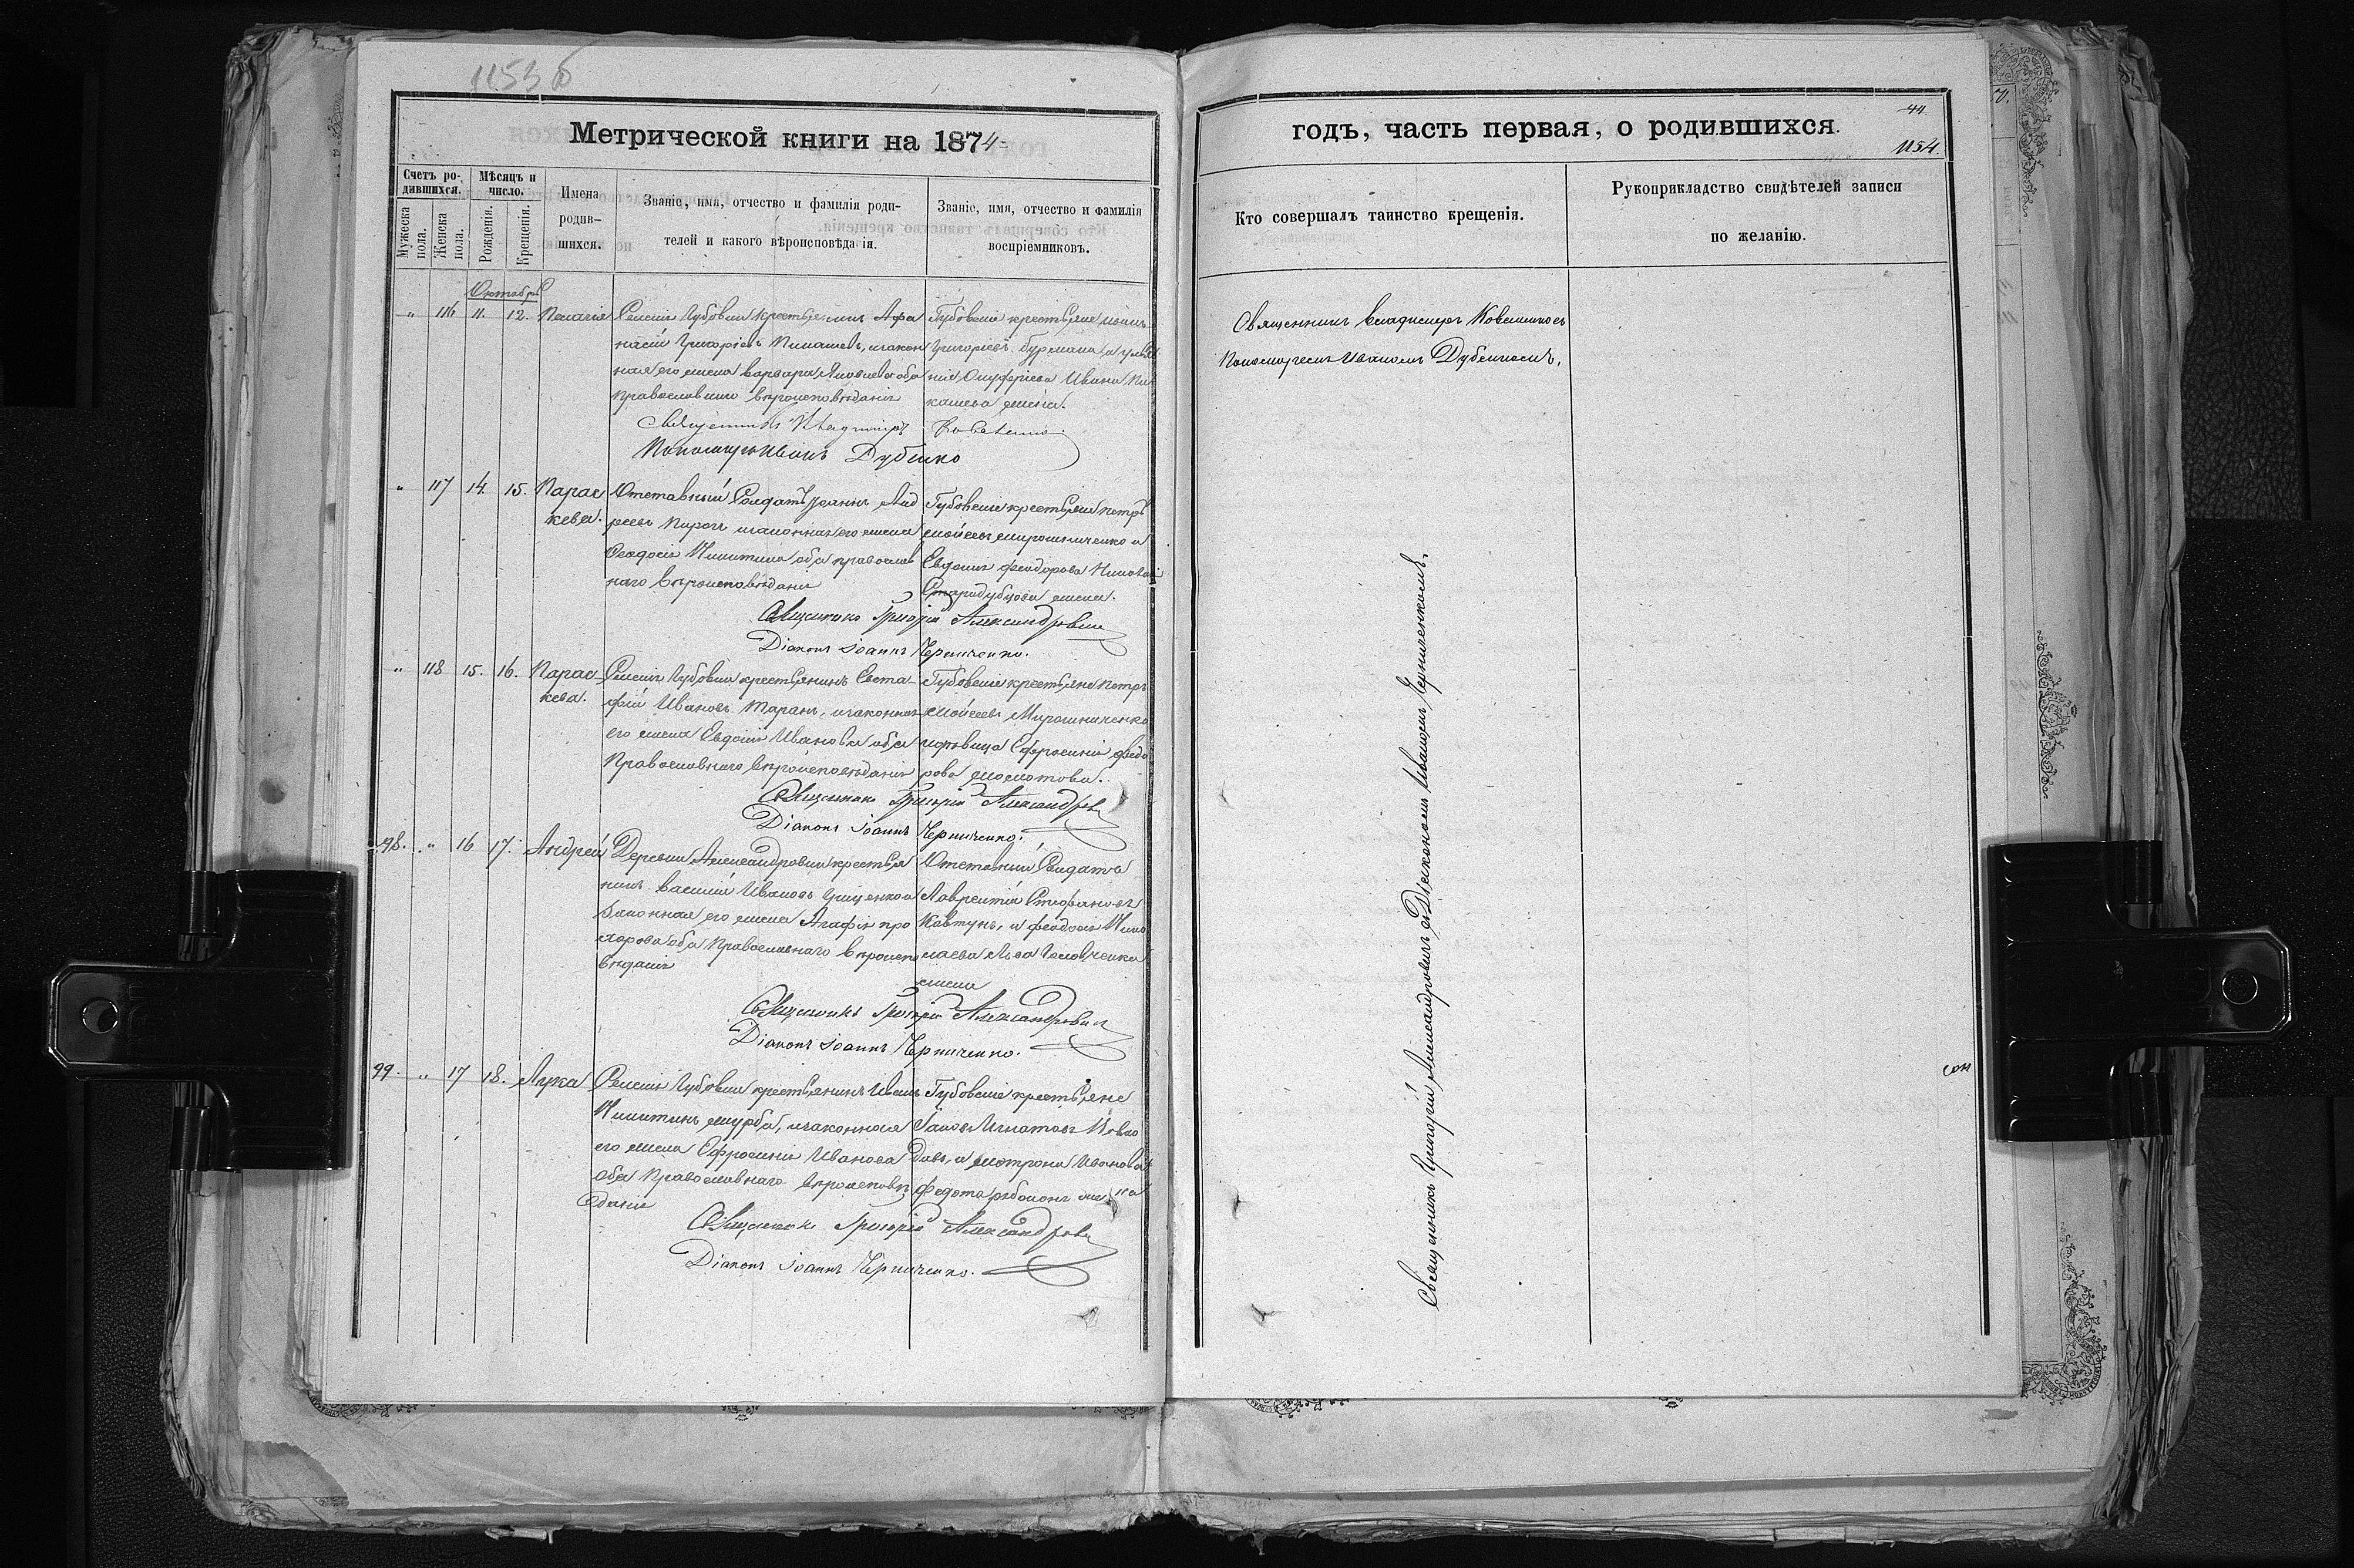 1153 б
Метрической книги на 1874
Счетъ родившихся.
Мужеска пола.
Женска пола.
Мѣсяцъ и число.
Рожденія.
Крещенія.
Имена родившихся.
Званіе, имя, отчество и фамилія родителей и какого вѣроисповѣданія.
Званіе, имя, отчество и фамилія воспріемниковъ.
Октябрь
" 116 11. 12. Пелагія
Селенія Губовки крестьянинъ Афа
насій Григоріевъ, и закон
ная его жена Варвара Яковлева оба
православнаго вѣроисповѣданія
Губовскіе крестьяне
Григоріевъ
Онуфріева Ивана
жена.
Священникъ Владиміръ Коваленко
Пономарь Иванъ Дубенко
" 117 14. 15. Парас
кева.
Отставный Солдатъ Іоаннъ Анд
реевъ Пирогъ и законная его жена
Феодосія Никитина оба православ
наго вѣроисповѣданія
Губовскіе крестьяне Петръ
Моисеевъ Мирошниченко и
Евдокія Феодорова
Стародубцова жена.
Священникъ Григорій Александровичъ
Діаконъ Іоаннъ Черниченко.
" 118 15. 16. Парас
кева.
Селенія Губовки крестьянинъ Евста
фій Ивановъ Таранъ, и законная
его жена Евдокія Иванова оба
Православнаго вѣроисповѣданія
Губовскіе крестьяне Петръ
Моисеевъ Мирошниченко
и дѣвица Ефросинія Федо
рова
Священникъ Григорій Александровичъ
Діаконъ Іоаннъ Черниченко.
98. " 16 17. Андрей
Деревни Александровки крестья
нинъ Василій Ивановъ Грищенко и
Законная его жена Агафія Про
хорова оба Православнаго вѣроиспо
вѣданія
Отставный Солдатъ
Лаврентій Стефановъ
Кавтунъ, и Феодосія Нико
лаева Льва
жена
Священникъ Григорій Александровичъ
Діаконъ Іоаннъ Черниченко.
99. " 17 18. Лука
Селенія Губовки крестьянинъ Иванъ
Никитинъ, и законная
его жена Ефросинія Иванова
оба Православнаго вѣроисповѣ
данія
Губовскіе крестьяне
Игнатовъ
и Матрона Иванова
Федота жена
Священникъ Григорій Александровичъ
Діаконъ Іоаннъ Черниченко.
годъ, часть первая, о родившихся.
44
1154.
Кто совершалъ таинство крещенія.
Рукоприкладство свидѣтелей записи по желанію.
Священникъ Владимиръ Коваленко съ
Пономаремъ Иваномъ Дубенкомъ.
Священникъ Григорій Александровичъ съ Діакономъ Иваномъ Черниченкомъ.